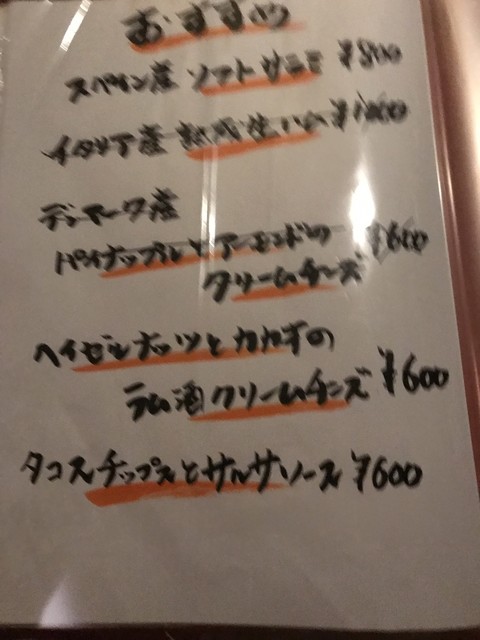 おすすめ
スペイン産 ソフトサラミ ¥800
イタリア産 熟成生ハム ¥1000
デンマーク産
パイナップルとアーモンドの ¥600
クリームチーズ
ヘイゼルナッツとカカオの
ラム酒クリームチーズ ¥600
タコスチップスとサルサソース ¥600